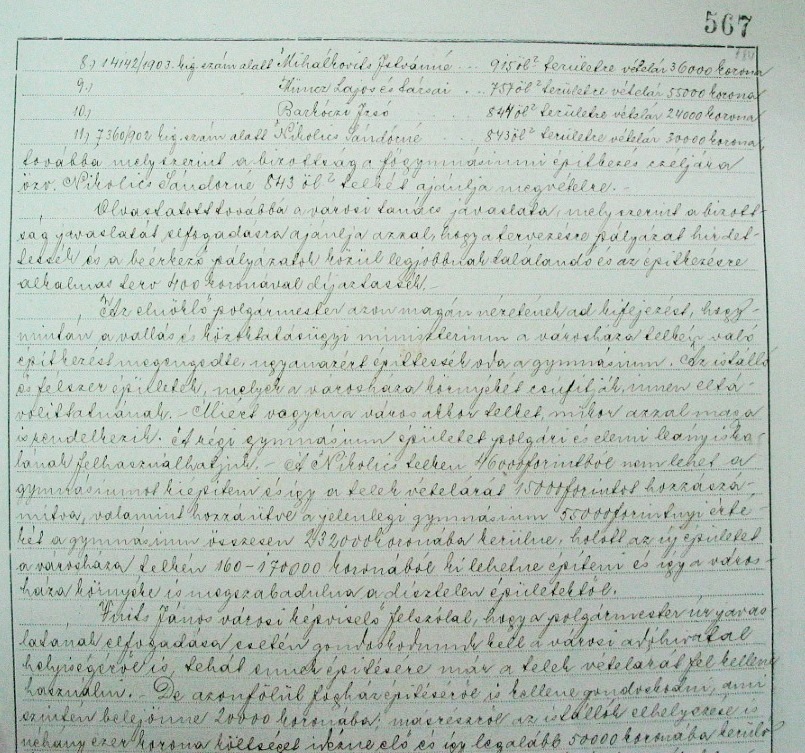 567
8.) 14142/1903. kig. szám alatt Mihálkovits Istvánné ... 915 öl² területre vételár 36000 korona
9.) Küncz Lajos és társai ... 757 öl² területre vételár 55000 korona
10.) Barkóczi Izsó ... 844 öl² területre vételár 24000 korona
11.) 7360/902 kig. szám alatt Nikolics Sándorné ... 843 öl² területre vételár 30000 korona,
továbbá mely szerint a bizottság a főgymnásiumi építkezés czéljára
özv. Nikolics Sándorné 843 öl² telkét ajánlja megvételre. -
Olvastatott továbbá a városi tanács javaslata, mely szerint a bizott-
ság javaslatát elfogadásra ajánlja azzal, hogy a tervezésre pályázat hirdet-
tessék és a beérkező pályázatok közül legjobbnak találandó és az építkezésre
alkalmas terv 400 koronával díjaztassék. -
Az elnöklő polgármester azon magán nézetének ad kifejezést, hogy
miután a vallás és közoktatásügyi miniszterium a városháza telkén való
építkezést megengedte, ugyanazért építtessék oda a gymnásium. Az istálló
és félszer épületek, melyek a városháza környékét csúfítják, innen eltá-
volíttatnának. - Miért vegyen a város akkor telket, mikor azzal maga
is rendelkezik. A régi gymnásium épületet polgári és elemi leány isko-
lának felhasználhatjuk. - A Nikolics telken 46000 forintból nem lehet a
gymnásiumot kiépíteni és így a telek vételárát 15000 forintot hozzászá-
mítva, valamint hozzáütve a jelenlegi gymnásium 55000 forintnyi érté-
két a gymnásium összesen 232000 koronába kerülne, holott az új épületet
a városháza telken 160-170000 koronából ki lehetne építeni és így a város-
háza környéke is megszabadulna a dísztelen épületektől.
János városi képviselő felszólal, hogy a polgármester úr javas-
latának elfogadása esetén gondoskodnunk kell a városi adóhivatal
helyiségéről is, tehát ennek építésére már a telek vételárát fel kellene
használni. - De azonfölül fogház építéséről is kellene gondoskodni, ami
szintén belejönne 20000 koronába, másrészről az istállók elhelyezése is
néhány ezer korona költséget igényelne elő és így legalább 50000 koronába kerülő